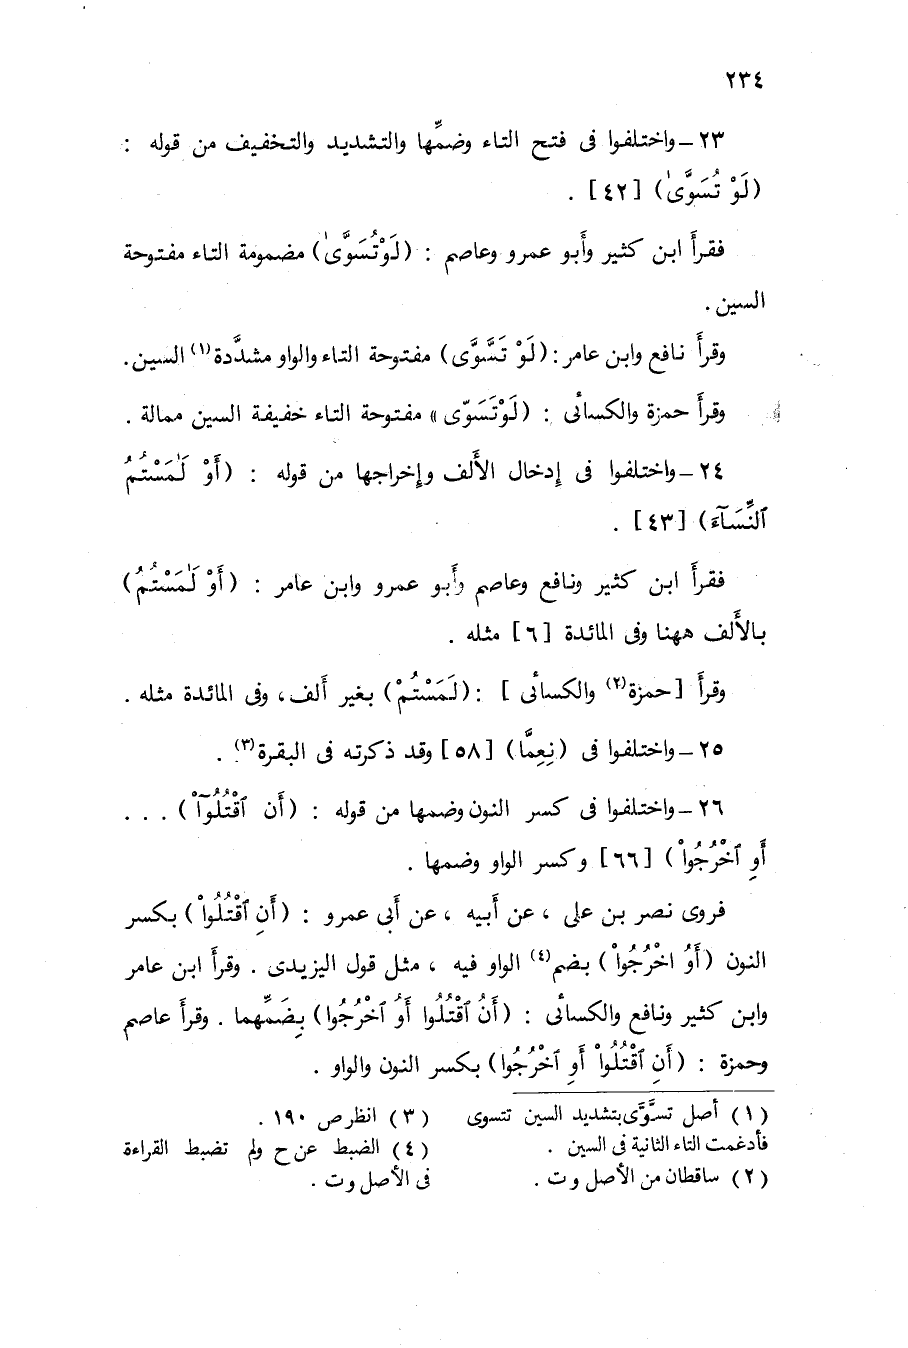 ٢٣٤
٢٣ – واختلفوا فى فتح التاء وضمِّها والتشديد والتخفيف من قوله :
(لَوْ تُسَوَّىٰ) [٤٢] .
فقرأَ ابن كثير وأَبو عمرو وعاصم : (لَوْتُسَوَّىٰ) مضمومة التاء مفتوحة
السين .
وقرأَ نافع وابن عامر : (لَوْ تَسَّوَّى) مفتوحة التاء والواو مشدَّدة(١) السين .
وقرأَ حمزة والكسائى : (لَوْتَسَوَّى» مفتوحة التاء خفيفة السين ممالة .
٢٤ – واختلفوا فى إدخال الأَلف وإخراجها من قوله : (أَوْ لَٰمَسْتُمُ
ٱلنِّسَآءَ) [٤٣] .
فقرأَ ابن كثير ونافع وعاصم وأَبو عمرو وابن عامر : (أَوْ لَٰمَسْتُمُ)
بالأَلف ههنا وفى المائدة [٦] مثله .
وقرأَ [حمزة(٢) والكسائى ] : (لَمَسْتُمْ) بغير أَلف ، وفى المائدة مثله .
٢٥ – واختلفوا فى (نِعِمَّا) [٥٨] وقد ذكرته فى البقرة(٣) .
٢٦ – واختلفوا فى كسر النون وضمها من قوله : (أَن ٱقْتُلُوٓاْ) . . .
أَوِ ٱخْرُجُواْ) [٦٦] وكسر الواو وضمها .
فروى نصر بن على ، عن أَبيه ، عن أَبى عمرو : (أَنِ ٱقْتُلُواْ) بكسر
النون (أَوُ اخْرُجُواْ) بضم(٤) الواو فيه ، مثل قول اليزيدى . وقرأَ ابن عامر
وابن كثير ونافع والكسائى : (أَنُ ٱقْتُلُوا أَوُ ٱخْرُجُوا) بِضَمِّهما . وقرأَ عاصم
وحمزة : (أَنِ ٱقْتُلُواْ أَوِ ٱخْرُجُوا) بكسر النون والواو .
(١) أصل تسَّوَّى بتشديد السين تتسوى
فأدغمت التاء الثانية فى السين .
(٢) ساقطان من الأصل و ت .
(٣) انظر ص ١٩٠ .
(٤) الضبط عن ح ولم تضبط القراءة
فى الأصل و ت .